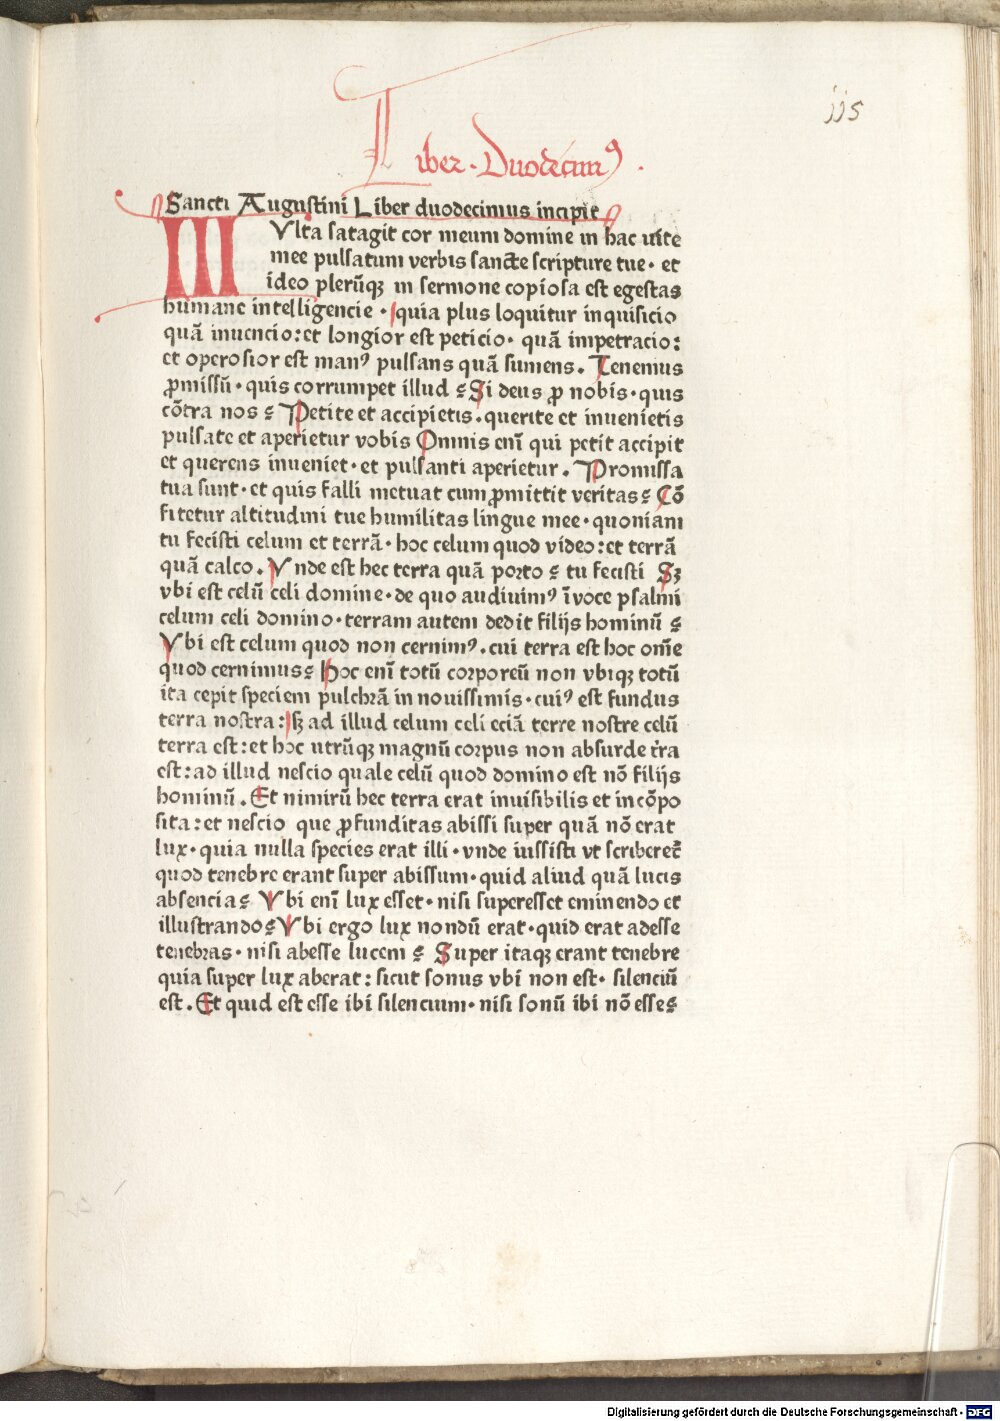 jj5
Liber · Duodecimꝰ ·
Sancti Augustini Liber duodecimus incipit
MVlta satagit cor meum domine in hac uite
mee pulsatum verbis sancte scripture tue · et
ideo plerūqꝫ in sermone copiosa est egestas
humane intelligencie · quia plus loquitur inquisicio
quā inuencio: et longior est peticio · quā impetracio:
et operosior est manꝰ pulsans quā sumens. Tenemus
ꝓmissū · quis corrumpet illud ? Si deus ꝓ nobis · quis
cōtra nos ? Petite et accipietis . querite et inuenietis
pulsate et aperietur vobis Omnis enī qui petit accipit
et querens inueniet · et pulsanti aperietur . Promissa
tua sunt · et quis falli metuat cum ꝓmittit veritas ? Cō
fitetur altitudini tue humilitas lingue mee · quoniam
tu fecisti celum et terrā · hoc celum quod video: et terrā
quā calco . Vnde est hec terra quā porto ? tu fecisti Sꝫ
vbi est celū celi domine · de quo audiuimꝰ ī voce psalmi
celum celi domino · terram autem dedit filijs hominū ?
Vbi est celum quod non cernimꝰ . cui terra est hoc om̄e
quod cernimus ? Hoc enī totū corporeū non vbiqꝫ totū
ita cepit speciem pulchrā in nouissimis · cuiꝰ est fundus
terra nostra: sꝫ ad illud celum celi eciā terre nostre celū
terra est: et hoc utrūqꝫ magnū corpus non absurde t̄ra
est: ad illud nescio quale celū quod domino est nō filijs
hominū . Et nimirū hec terra erat inuisibilis et incōpo
sita: et nescio que ꝓfunditas abissi super quā nō erat
lux · quia nulla species erat illi · vnde iussisti vt scriberet̄
quod tenebre erant super abissum · quid aliud quā lucis
absencia ? Vbi enī lux esset · nisi superesset eminendo et
illustrando ? Vbi ergo lux nondū erat · quid erat adesse
tenebras · nisi abesse lucem ? Super itaqꝫ erant tenebre
quia super lux aberat : sicut sonus vbi non est · silenciū
est . Et quid est esse ibi silencium · nisi sonū ibi nō esse ?
Digitalisierung gefördert durch die Deutsche Forschungsgemeinschaft - DFG